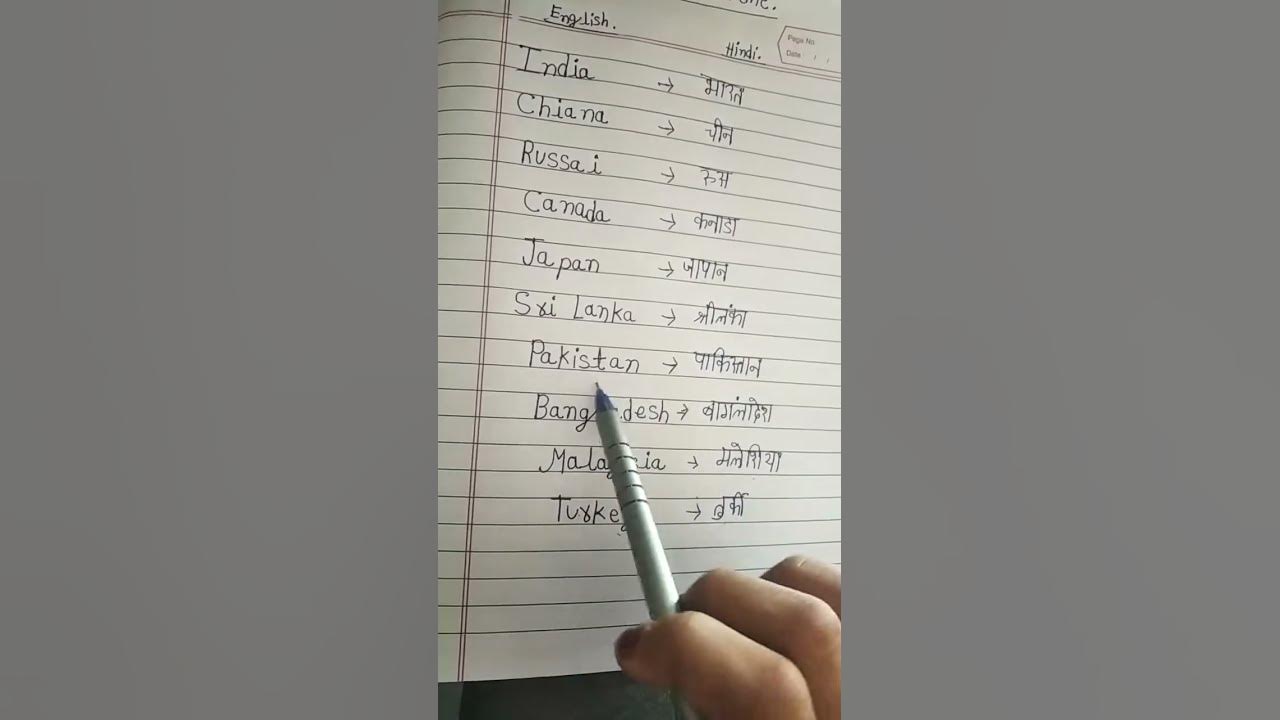 English.
Hindi.
Page No
Date / /
India → भारत
Chiana → चीन
Russai → रुस
Canada → कनाडा
Japan → जापान
Sri Lanka → श्रीलंका
Pakistan → पाकिस्तान
→ बागलंादेश
→ मलेशिया
→ तुर्की